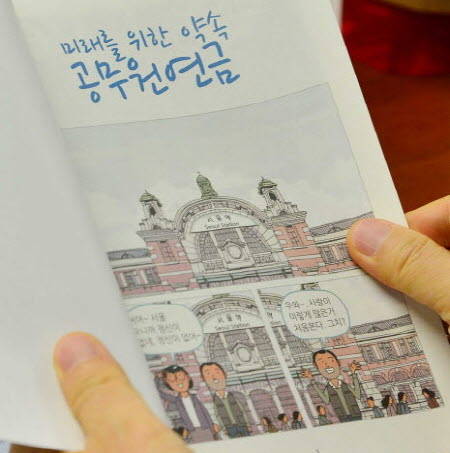 미래를 위한 약속
공무원연금
서울역
Seoul Station
서울역
Seoul Station
서울
정신이
정신이 없어
우와~ 사람이
이렇게 많은거
처음본다. 그치?